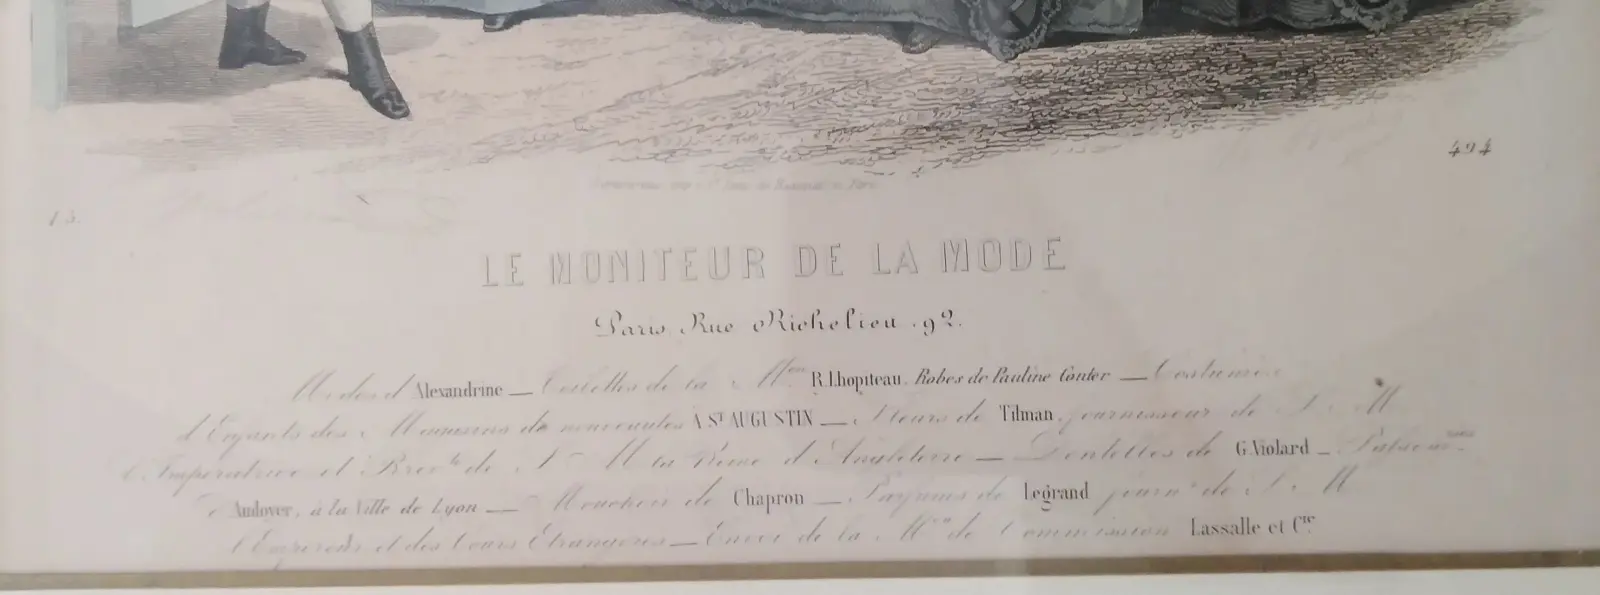 494
13.
LE MONITEUR DE LA MODE
Paris, Rue Richelieu, 92.
Modes d'Alexandrine — Toilettes de la Mon R. Lhopiteau. Robes de Pauline Conter — Costumes
d'Enfants des Magasins de nouveautés À St AUGUSTIN — Fleurs de Tilman, fournisseur de S M
l'Impératrice et Brevté de S M la Reine d'Angleterre — Dentelles de G. Violard —
Andover, à la Ville de Lyon — Mouchoir de Chapron — Parfums de Legrand fournr de S M
l'Empereur et des Cours Étrangères — Envoi de la Mon de Commission Lassalle et Cie.